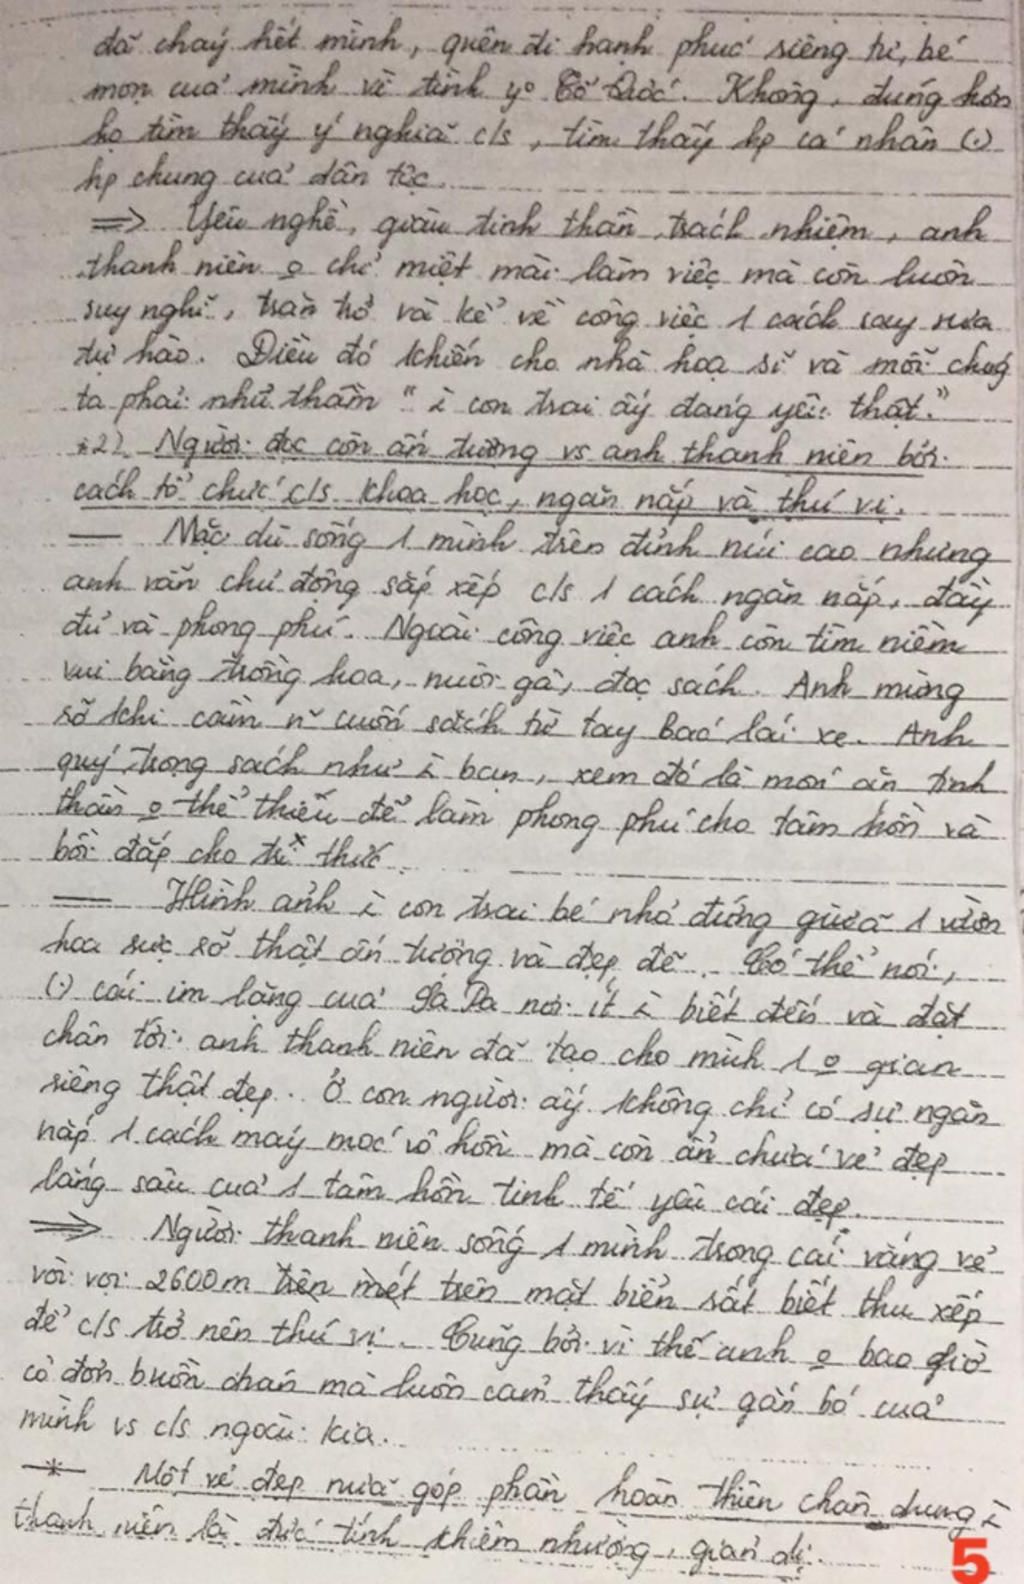 đã cháy hết mình, quên đi hạnh phúc riêng tư, bé
mọn của mình vì tình yº Tổ Quốc. Không, đúng hơn
họ tìm thấy ý nghĩa c/s, tìm thấy hp cá nhân (.)
hp chung của dân tộc.
=> Yêu nghề, giàu tinh thần trách nhiệm, anh
thanh niên o chỉ miệt mài làm việc mà còn luôn
suy nghĩ, trăn trở và kể về công việc 1 cách say sưa
tự hào. Điều đó khiến cho nhà họa sĩ và mỗi chúg
ta phải nhủ thầm "ì con trai ấy đáng yêu thật."
*2). Người đọc còn ấn tượng vs anh thanh niên bởi
cách tổ chức c/s khoa học, ngăn nắp và thú vị.
— Mặc dù sống 1 mình trên đỉnh núi cao nhưng
anh vẫn chủ động sắp xếp c/s 1 cách ngăn nắp, đầy
đủ và phong phú. Ngoài công việc anh còn tìm niềm
vui bằng trồng hoa, nuôi gà, đọc sách. Anh mừng
rỡ khi cầm n~ cuốn sách từ tay bác lái xe. Anh
quý trọng sách như ì bạn, xem đó là món ăn tinh
thần o thể thiếu để làm phong phú cho tâm hồn và
bồi đắp cho tri thức.
— Hình ảnh ì con trai bé nhỏ đứng giữa 1 vườn
hoa rực rỡ thật ấn tượng và đẹp đẽ. Có thể nói,
(.) cái im lặng của Sa Pa nơi ít ì biết đến và đặt
chân tới anh thanh niên đã tạo cho mình 1 o gian
riêng thật đẹp. Ở con người ấy không chỉ có sự ngăn
nắp 1 cách máy móc vô hồn mà còn ẩn chứa vẻ đẹp
lắng sâu của 1 tâm hồn tinh tế yêu cái đẹp.
=> Người thanh niên sống 1 mình trong cái vắng vẻ
vời vợi 2600m trên mét trên mặt biển rất biết thu xếp
để c/s trở nên thú vị. Cũng bởi vì thế anh o bao giờ
cô đơn buồn chán mà luôn cảm thấy sự gắn bó của
mình vs c/s ngoài kia.
* Một vẻ đẹp nữa góp phần hoàn thiện chân dung ì
thanh niên là đức tính khiêm nhường, giản dị.
5